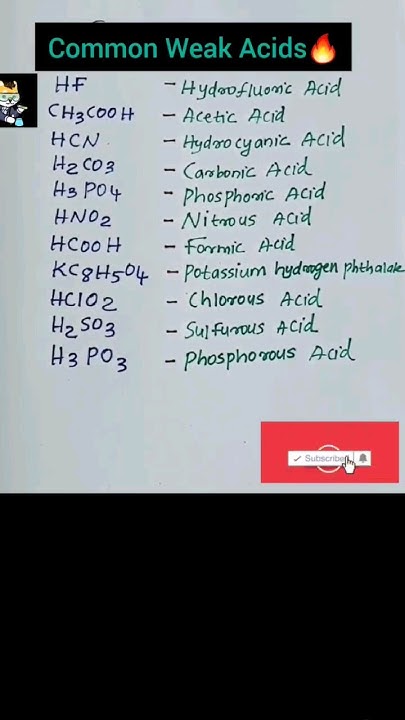 Common Weak Acids🔥
HF - Hydrofluoric Acid
CH3COOH - Acetic Acid
HCN - Hydrocyanic Acid
H2CO3 - Carbonic Acid
H3PO4 - Phosphoric Acid
HNO2 - Nitrous Acid
HCOOH - Formic Acid
KC8H5O4 - Potassium hydrogen phthalate
HClO2 - Chlorous Acid
H2SO3 - Sulfurous Acid
H3PO3 - Phosphorous Acid
✓ Subscribe